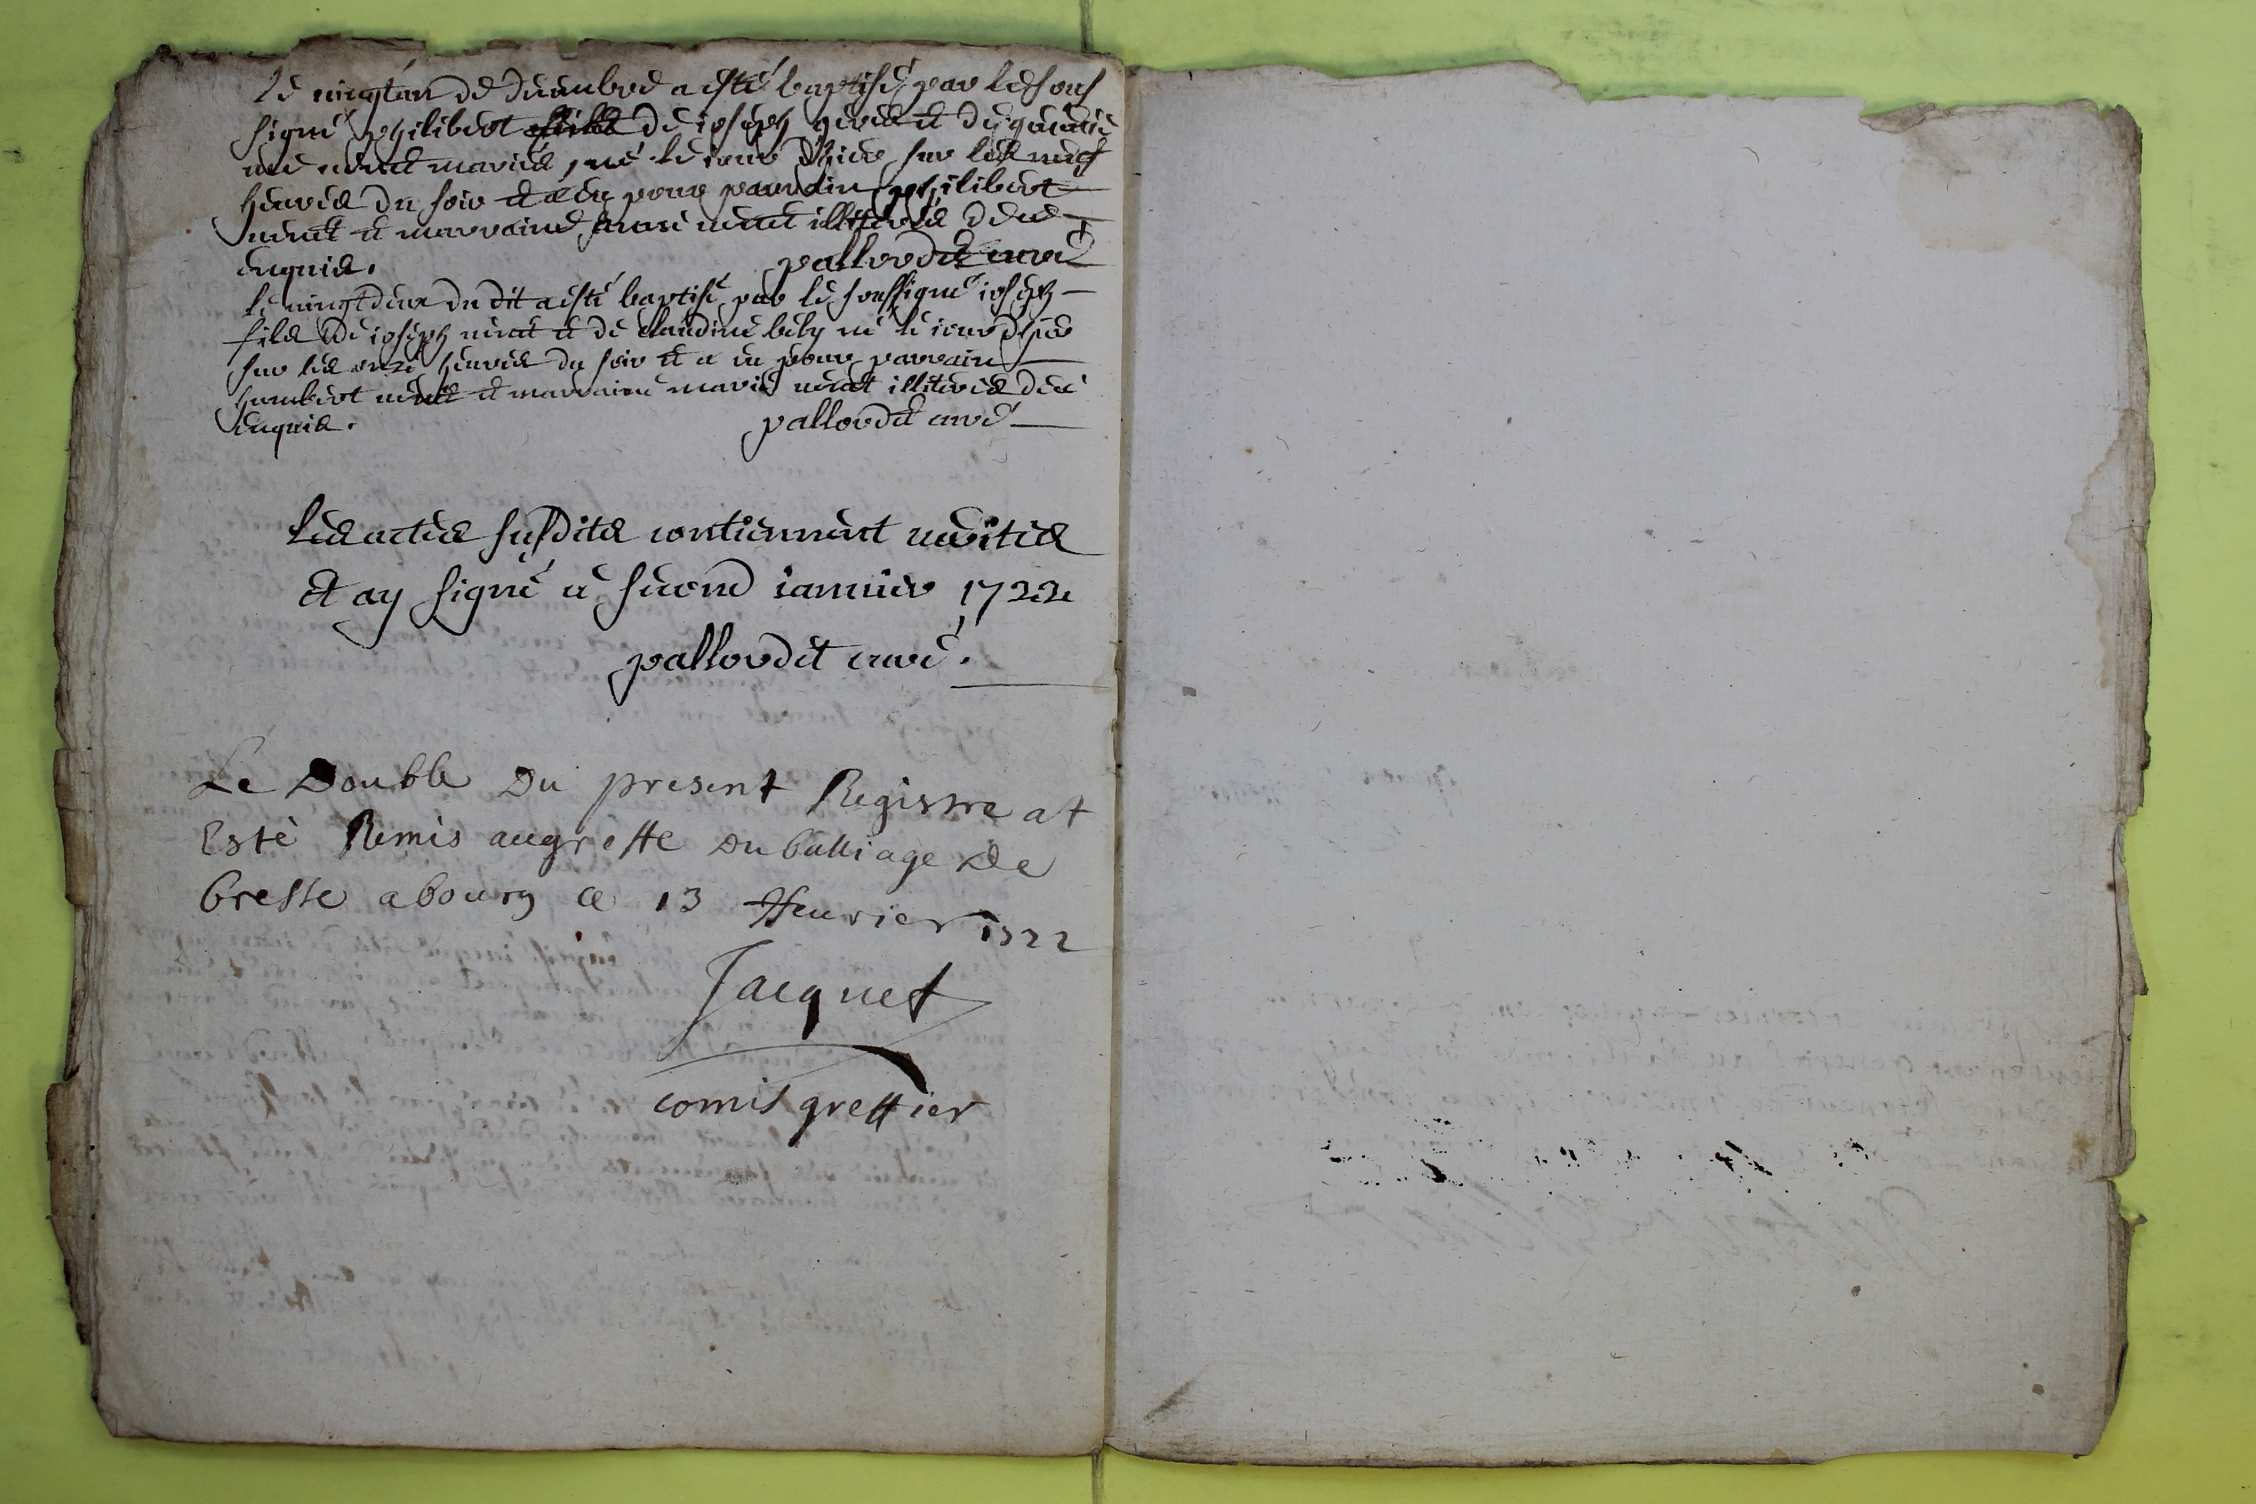 Le vingt un de decembre a esté baptisé par le sous
signé philibert fille de ioseph
mariés, né le iour d'hier sur les neuf
heures du soir et a eu pour parrain philibert
et marraine illiterés de ce
enquis. pallordet curé
le vingtdeux du dit a esté baptisé par le soussigné ioseph
fils de ioseph et de claudine bely né le iour d'hier
sur les onze heures du soir et a eu pour parrain
humbert et marraine marie illiterés de ce
enquis. pallordet curé
Les actes susdits contiennent verités
et ay signé ce second ianvier 1722
pallordet curé.
Le Double Du present Registre at
Esté Remis augreffe Du balliage De
bresse abourg ce 13 ffeurier 1722
Jacquet
comis greffier